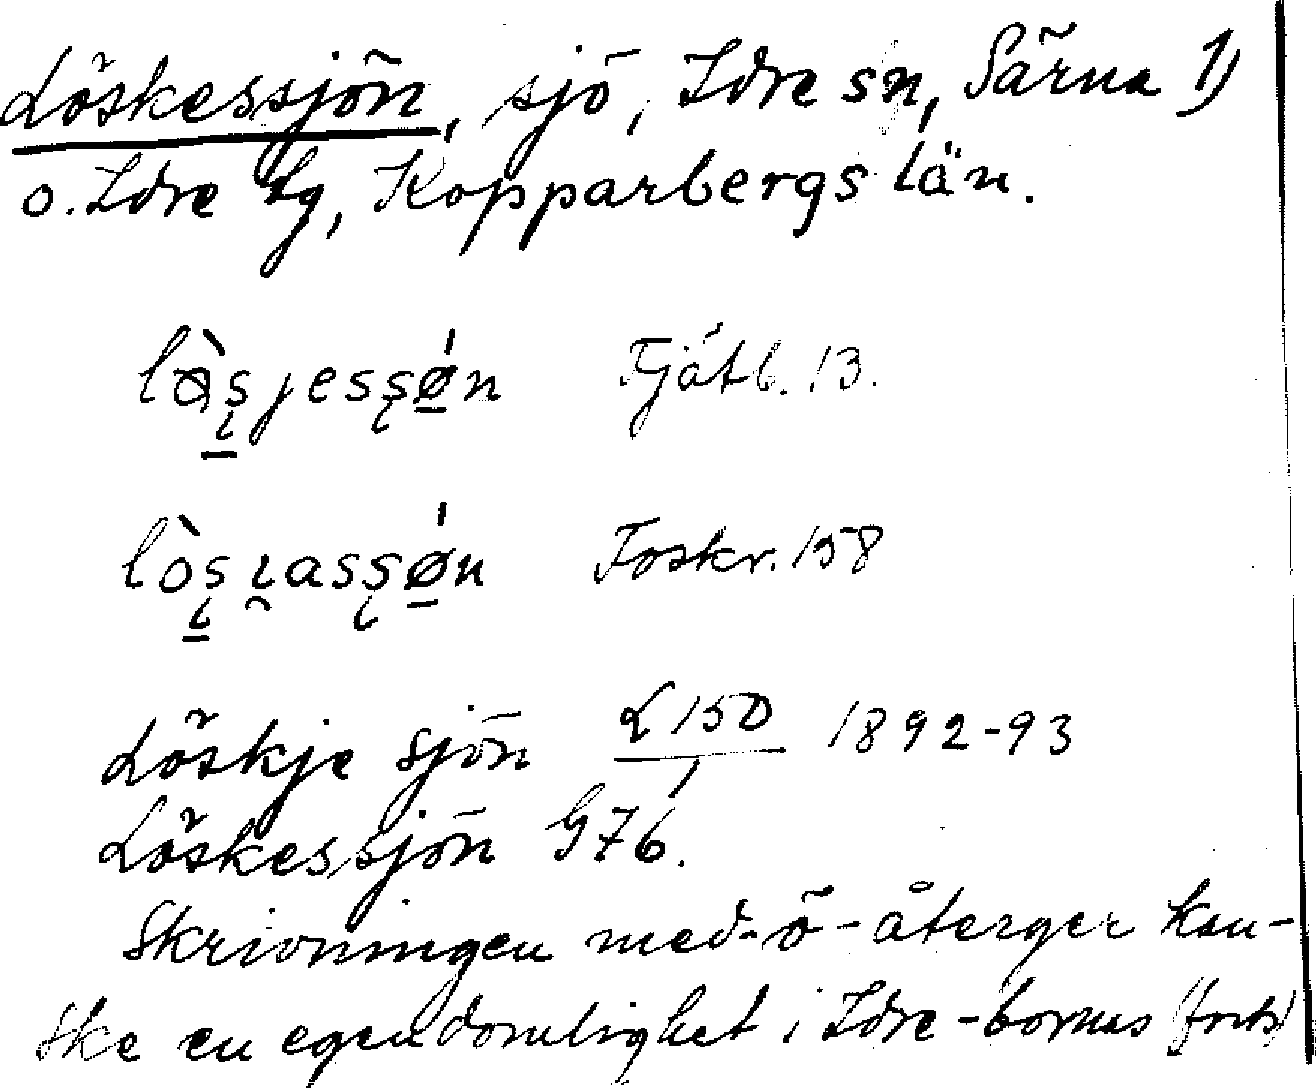 Löskessjön, sjö, Idre sn, Särna 1)
o. Idre tg, Kopparbergs län.
Fjätb. 13.
Foskr. 158
Löskje sjön L 150/1 1892-93
Löskessjön G76.
Skrivningen med -ö- återger kan-
ske en egendomlighet i Idre-bornas (forts)